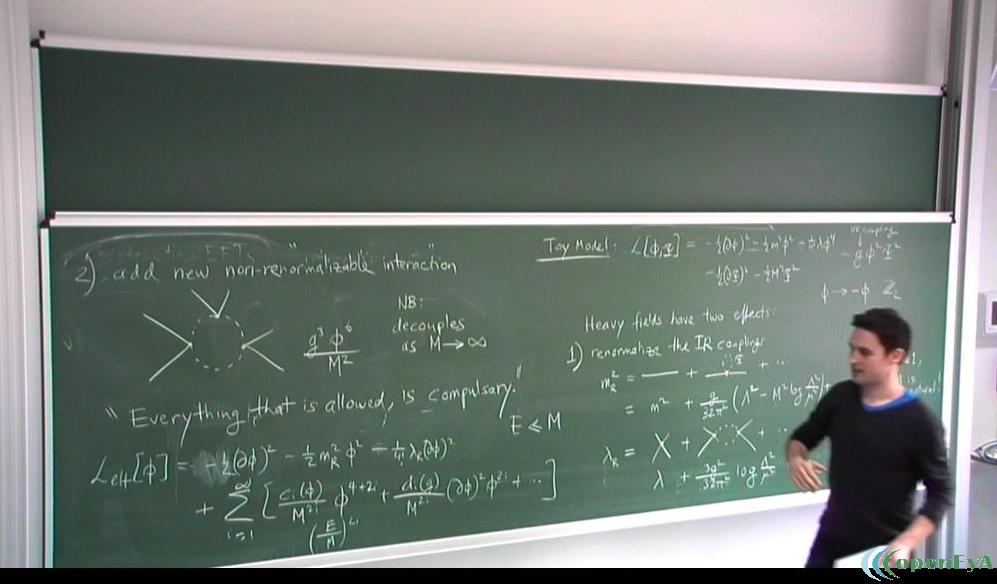 2) add new "non-renormalizable interaction"
g³ φ⁶ / M²
NB:
decouples
as M → ∞
"Everything, that is allowed, is compulsory."
E ≪ M
L_eff[φ] = -½(∂φ)² - ½ m_R² φ² - 1/4! λ_R (∂φ)²
+ Σ_{i=1}^∞ [ c_i(g)/M^{2i} φ^{4+2i} + d_i(g)/M^{2i} (∂φ)² φ^{2i} + ... ]
(E/M)^{2i}
Toy Model: L[φ,Φ] = -½(∂φ)² - ½m²φ² - 1/4! λφ⁴
UV coupling
- g φ² Φ²
-½(∂Φ)² - ½M²Φ²
φ → -φ Z₂
Heavy fields have two effects:
1) renormalize the IR couplings
m_R² = + + ...
= m² + g/32π² (Λ² - M² log Λ²/μ²) +
λ_R = + + ...
λ + 3g²/32π² log Λ²/μ²
openEyA